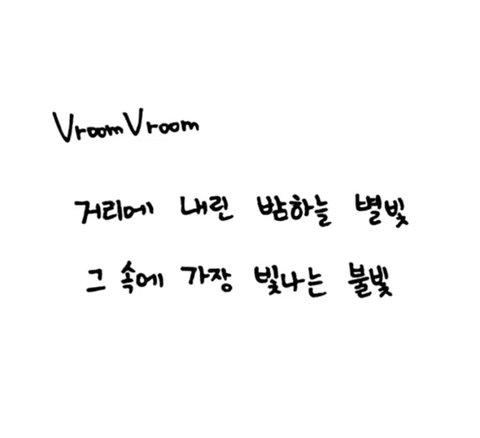 VroomVroom
거리에 내린 밤하늘 별빛
그 속에 가장 빛나는 불빛